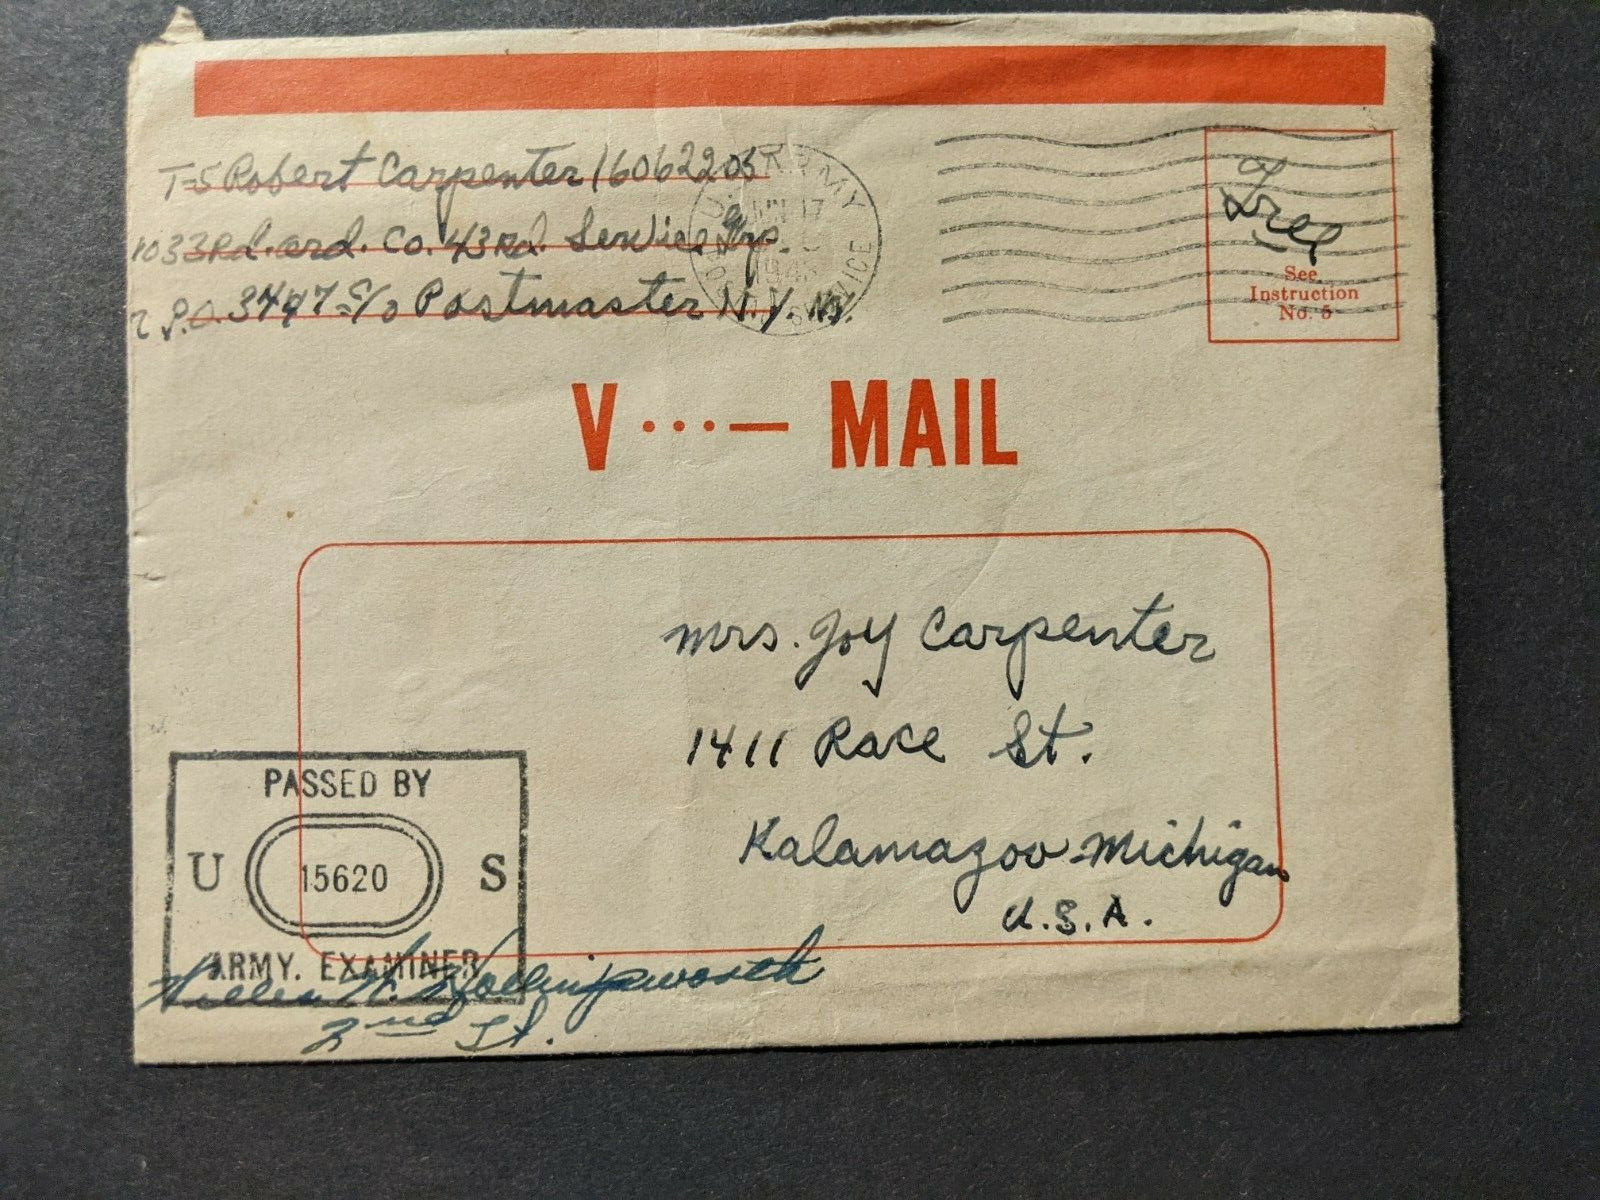 T-5 Robert Carpenter 16062205
1033Rd. ord. Co. 43Rd. Service Grp.
A.P.O. 3747 c/o Postmaster N.Y. N.Y.
U.S. ARMY
17
1943
POSTAL SERVICE
Free
See
Instruction
No. 5
V ···— MAIL
Mrs. Joy Carpenter
1411 Race St.
Kalamazoo-Michigan
U.S.A.
PASSED BY
U 15620 S
ARMY. EXAMINER
W. Hollingsworth
2nd Lt.